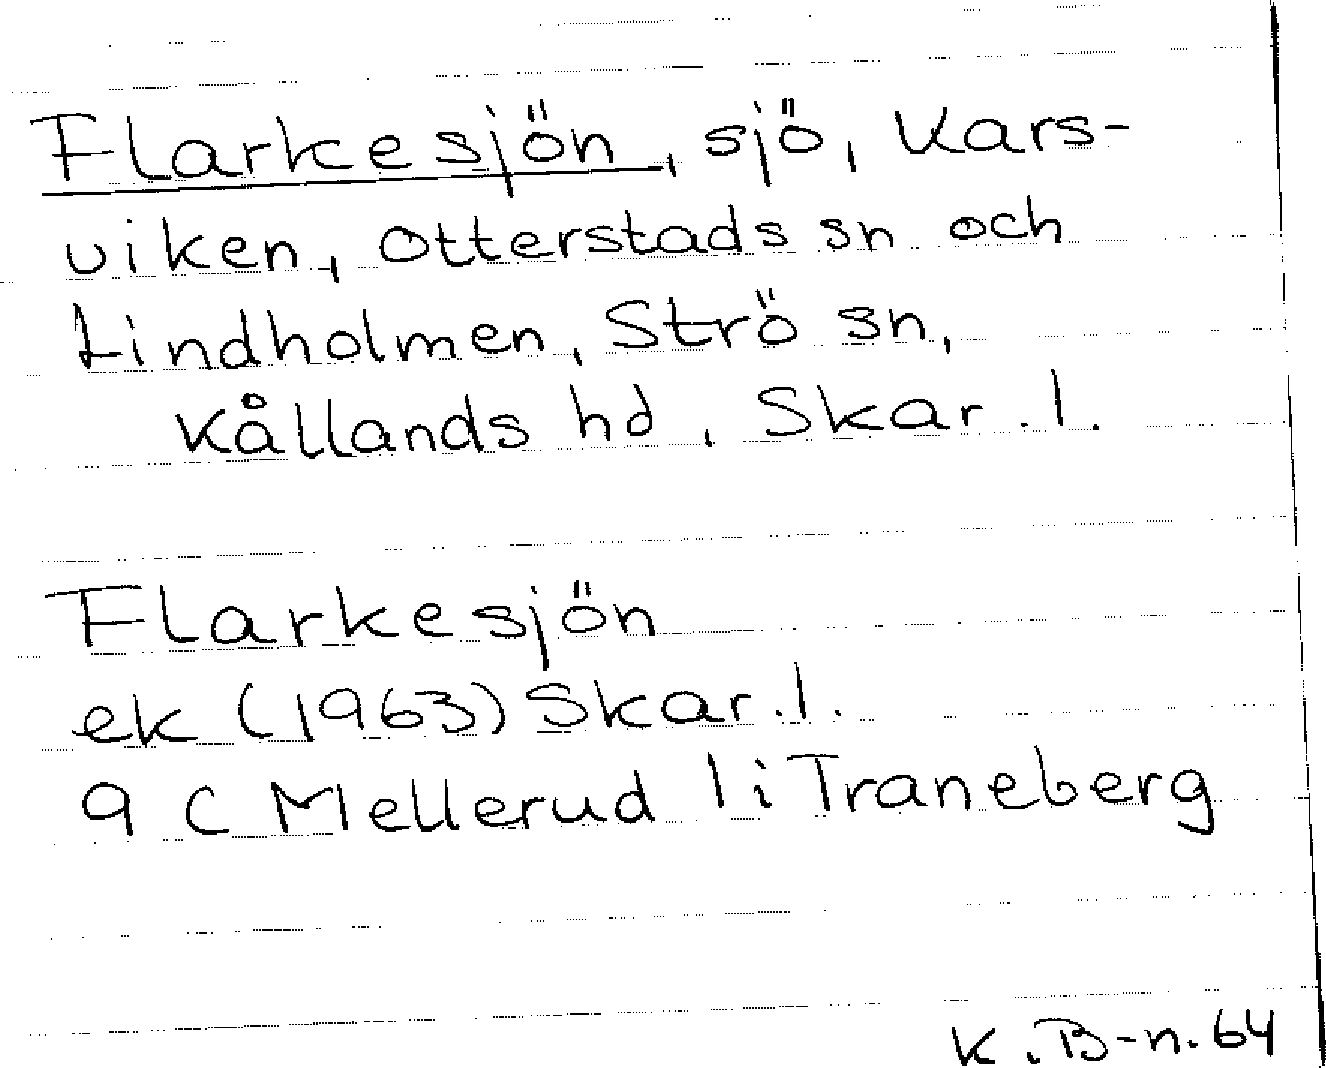 Flarkesjön, sjö, Kars-
viken, Otterstads sn och
Lindholmen, Strö sn,
Kållands hd, Skar. l.
Flarkesjön
ek (1963) Skar. l.
9 C Mellerud 1 i Traneberg
K. B-n. 64